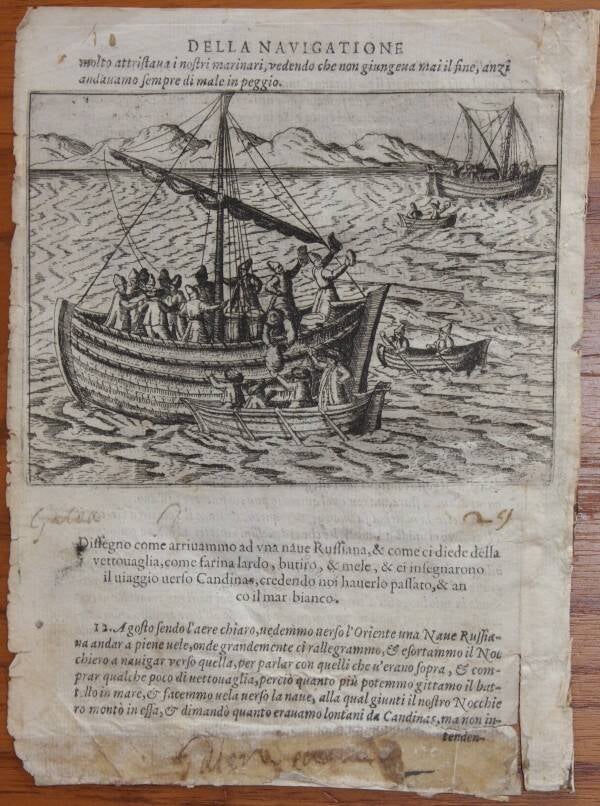 DELLA NAVIGATIONE
molto attristaua i nostri marinari, vedendo che non giungeua mai il fine, anzi
andauamo sempre di male in peggio.
29
Dissegno come arriuammo ad vna naue Russiana, & come ci diede della
vettouaglia, come farina lardo, butiro, & mele, & ci insegnarono
il uiaggio uerso Candinas, credendo noi hauerlo passato, & an
co il mar bianco.
12. Agosto sendo l'aere chiaro, uedemmo uerso l'Oriente una Naue Russia-
na andar a piene uele, onde grandemente ci rallegrammo, & esortammo il Noc
chiero a nauigar verso quella, per parlar con quelli che u'erano sopra, & com-
prar qualche poco di uettouaglia, perciò quanto più potemmo gittamo il bat-
tello in mare, & facemmo uela uerso la naue, alla qual giunti il nostro Nocchie
ro montò in essa, & dimandò quanto erauamo lontani da Candinas, ma non in-
tenden-